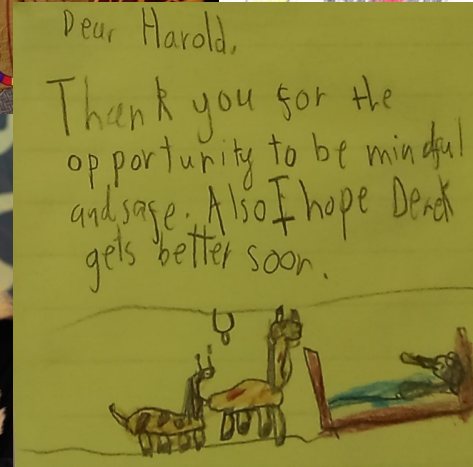 Dear Harold,
Thank you for the
opportunity to be mindful
and safe. Also I hope Derek
gets better soon.